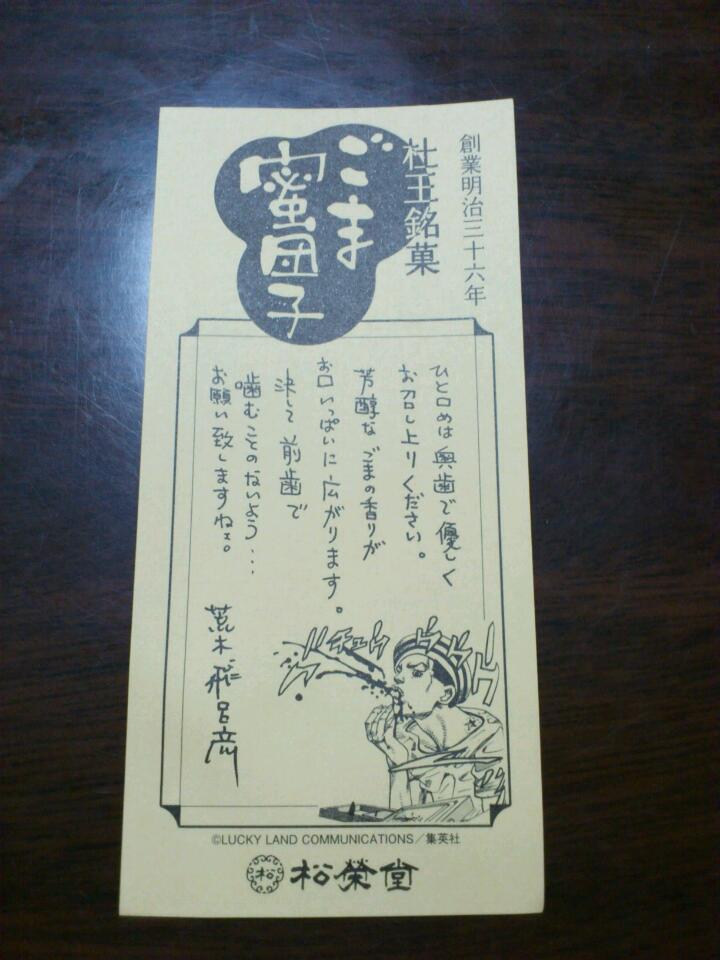 創業明治三十六年
杜王銘菓
ごま
蜜団子
ひと口めは奥歯で優しく
お召し上りください。
芳醇なごまの香りが
お口いっぱいに広がります。
決して前歯で
噛むことのないよう…
お願い致しますねェ。
荒木飛呂彦
ブチュウ
ドドドド
©LUCKY LAND COMMUNICATIONS／集英社
松
松榮堂